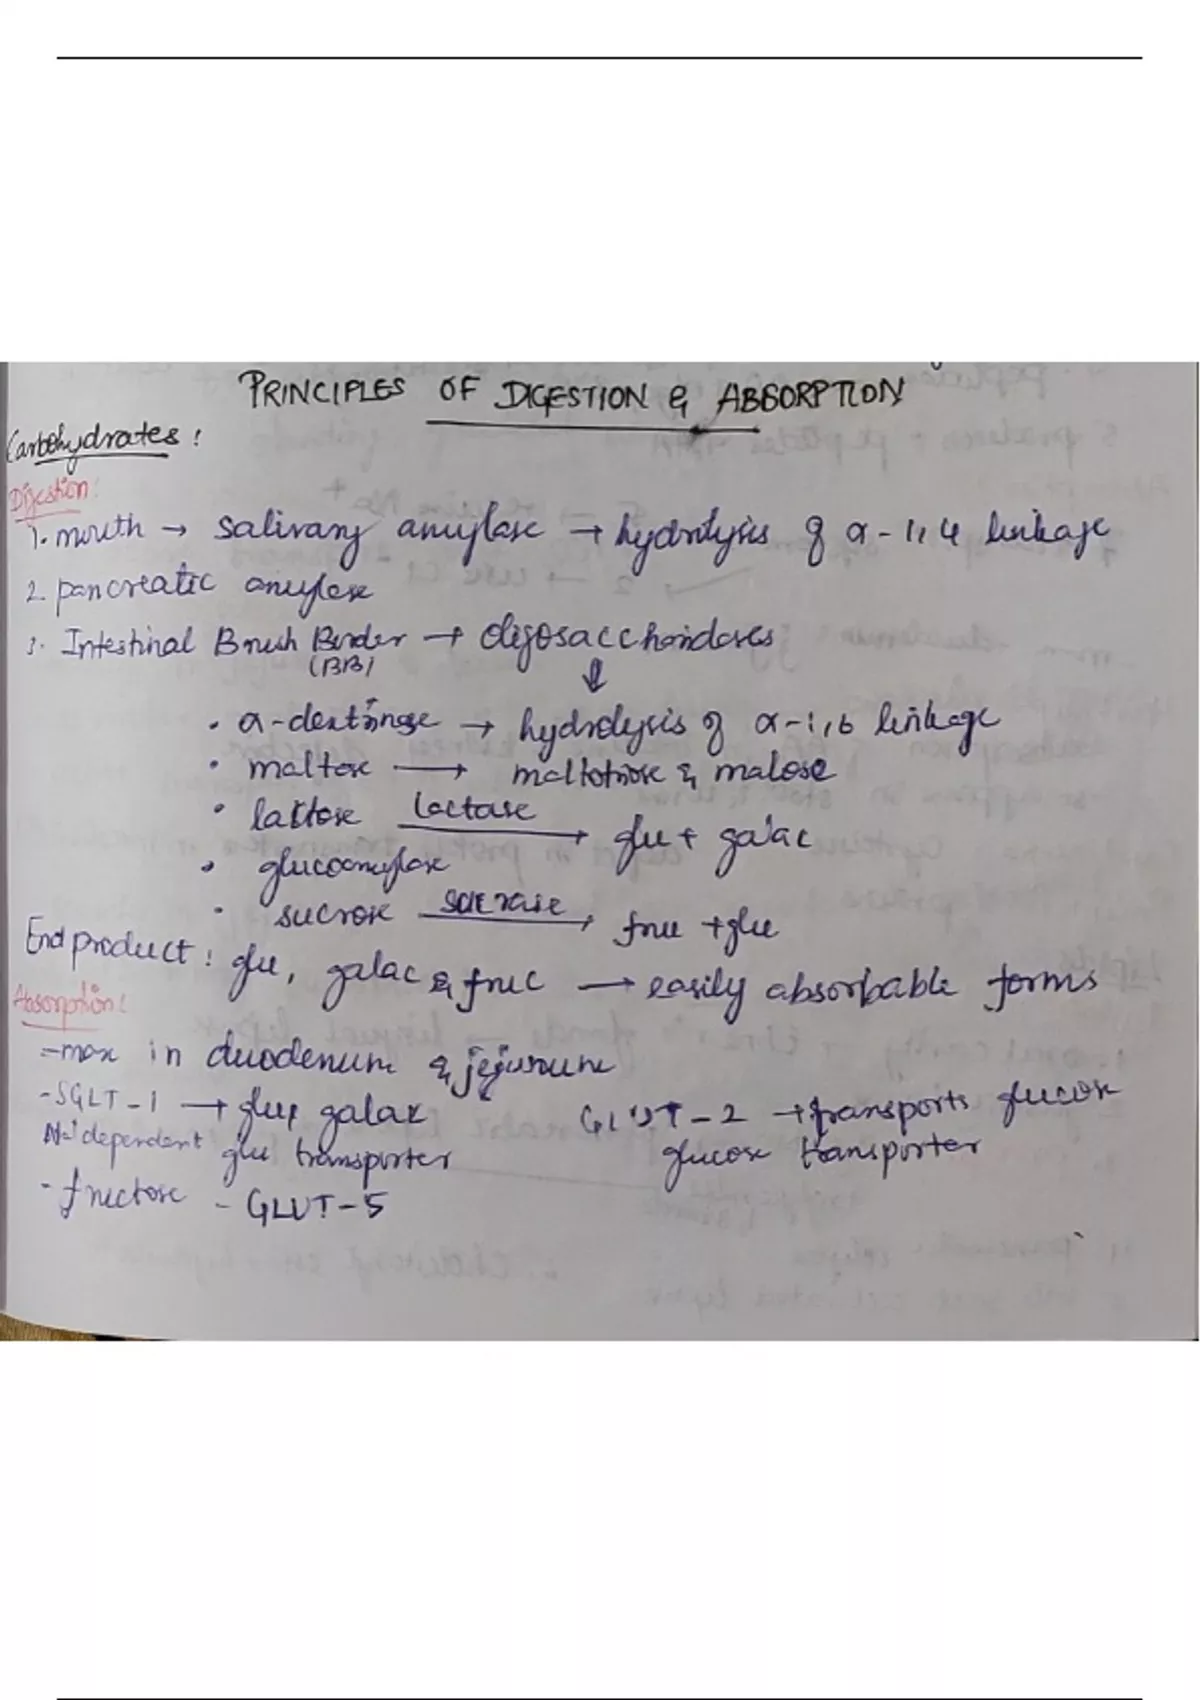 PRINCIPLES OF DIGESTION & ABSORPTION
Carbohydrates :
Digestion:
1. mouth → salivary amylase → hydrolysis of α-1,4 linkage
2. pancreatic amylase
3. Intestinal Brush Border → oligosaccharidases
(BB)
⇓
• α-dextrinase → hydrolysis of α-1,6 linkage
• maltose → maltotriose & malose
• lactose lactase → glu + galac
• glucoamylase
• sucrose sucrase → fru + glu
End product : glu, galac & fruc → easily absorbable forms
Absorption:
- max in duodenum & jejunum
- SGLT-1 → glu, galac GLUT-2 → transports glucose
Na⁺ dependent glu transporter glucose transporter
- fructose - GLUT-5